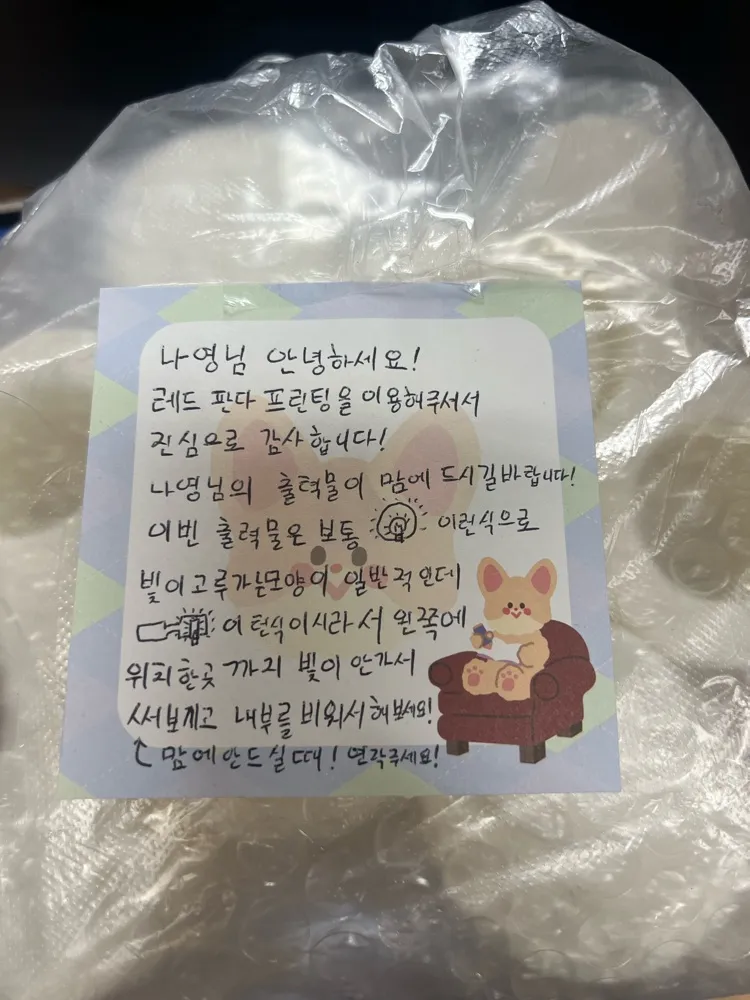 나영님 안녕하세요!
레드 판다 프린팅을 이용해주셔서
진심으로 감사합니다!
나영님의 출력물이 맘에 드시길바랍니다!
이번 출력물은 보통 이런식으로
빛이 고루가는모양이 일반적인데
이런식이시라서 왼쪽에
위치한곳까지 빛이 안가서
써보시고 내부를 비워서해보세요!
맘에안드실때! 연락주세요!